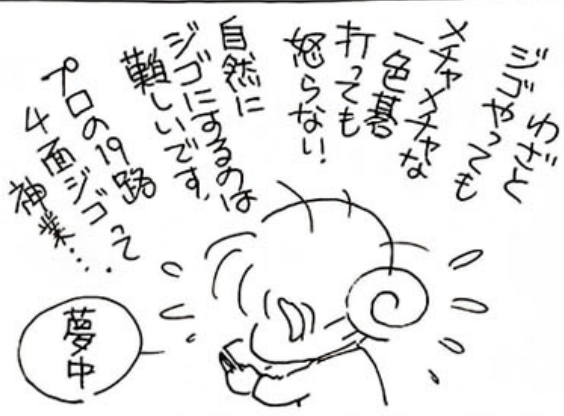 わざと
ジゴやっても
メチャメチャな
一色碁
打っても
怒らない!
自然に
ジゴにするのは
難しいです、
プロの19路
4面ジゴって
神業...
夢中